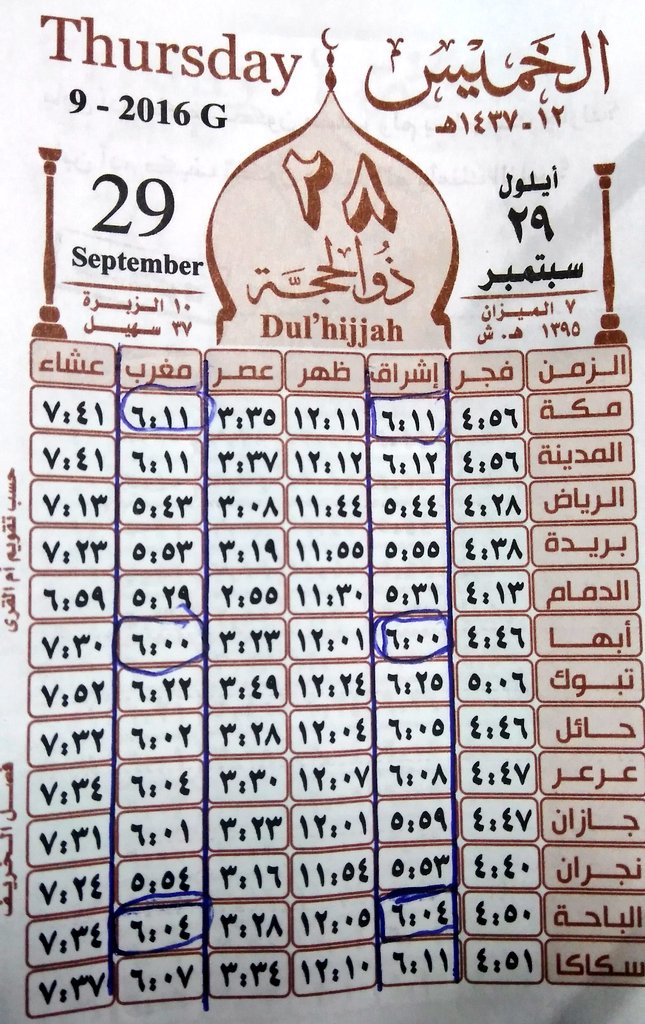 Thursday الخميس
9 - 2016 G ١٢-١٤٣٧هـ
29
September
١٠ الزبرة
٣٧ سهيل
٢٨
ذو الحجة
Dul'hijjah
أيلول
٢٩
سبتمبر
٧ الميزان
١٣٩٥ هـ. ش
الزمن فجر إشراق ظهر عصر مغرب عشاء
مكة ٤:٥٦ ٦:١١ ١٢:١١ ٣:٣٥ ٦:١١ ٧:٤١
المدينة ٤:٥٦ ٦:١٢ ١٢:١٢ ٣:٣٧ ٦:١١ ٧:٤١
الرياض ٤:٢٨ ٥:٤٤ ١١:٤٤ ٣:٠٨ ٥:٤٣ ٧:١٣
بريدة ٤:٣٨ ٥:٥٥ ١١:٥٥ ٣:١٩ ٥:٥٣ ٧:٢٣
الدمام ٤:١٣ ٥:٣١ ١١:٣٠ ٢:٥٥ ٥:٢٩ ٦:٥٩
أبها ٤:٤٦ ٦:٠٠ ١٢:٠١ ٣:٢٣ ٦:٠٠ ٧:٣٠
تبوك ٥:٠٦ ٦:٢٥ ١٢:٢٤ ٣:٤٩ ٦:٢٢ ٧:٥٢
حائل ٤:٤٦ ٦:٠٥ ١٢:٠٤ ٣:٢٨ ٦:٠٢ ٧:٣٢
عرعر ٤:٤٧ ٦:٠٨ ١٢:٠٧ ٣:٣٠ ٦:٠٤ ٧:٣٤
جازان ٤:٤٧ ٥:٥٩ ١٢:٠١ ٣:٢٣ ٦:٠١ ٧:٣١
نجران ٤:٤٠ ٥:٥٣ ١١:٥٤ ٣:١٦ ٥:٥٤ ٧:٢٤
الباحة ٤:٥٠ ٦:٠٤ ١٢:٠٥ ٣:٢٨ ٦:٠٤ ٧:٣٤
سكاكا ٤:٥١ ٦:١١ ١٢:١٠ ٣:٣٤ ٦:٠٧ ٧:٣٧
حسب تقويم أم القرى
فصل الخريف